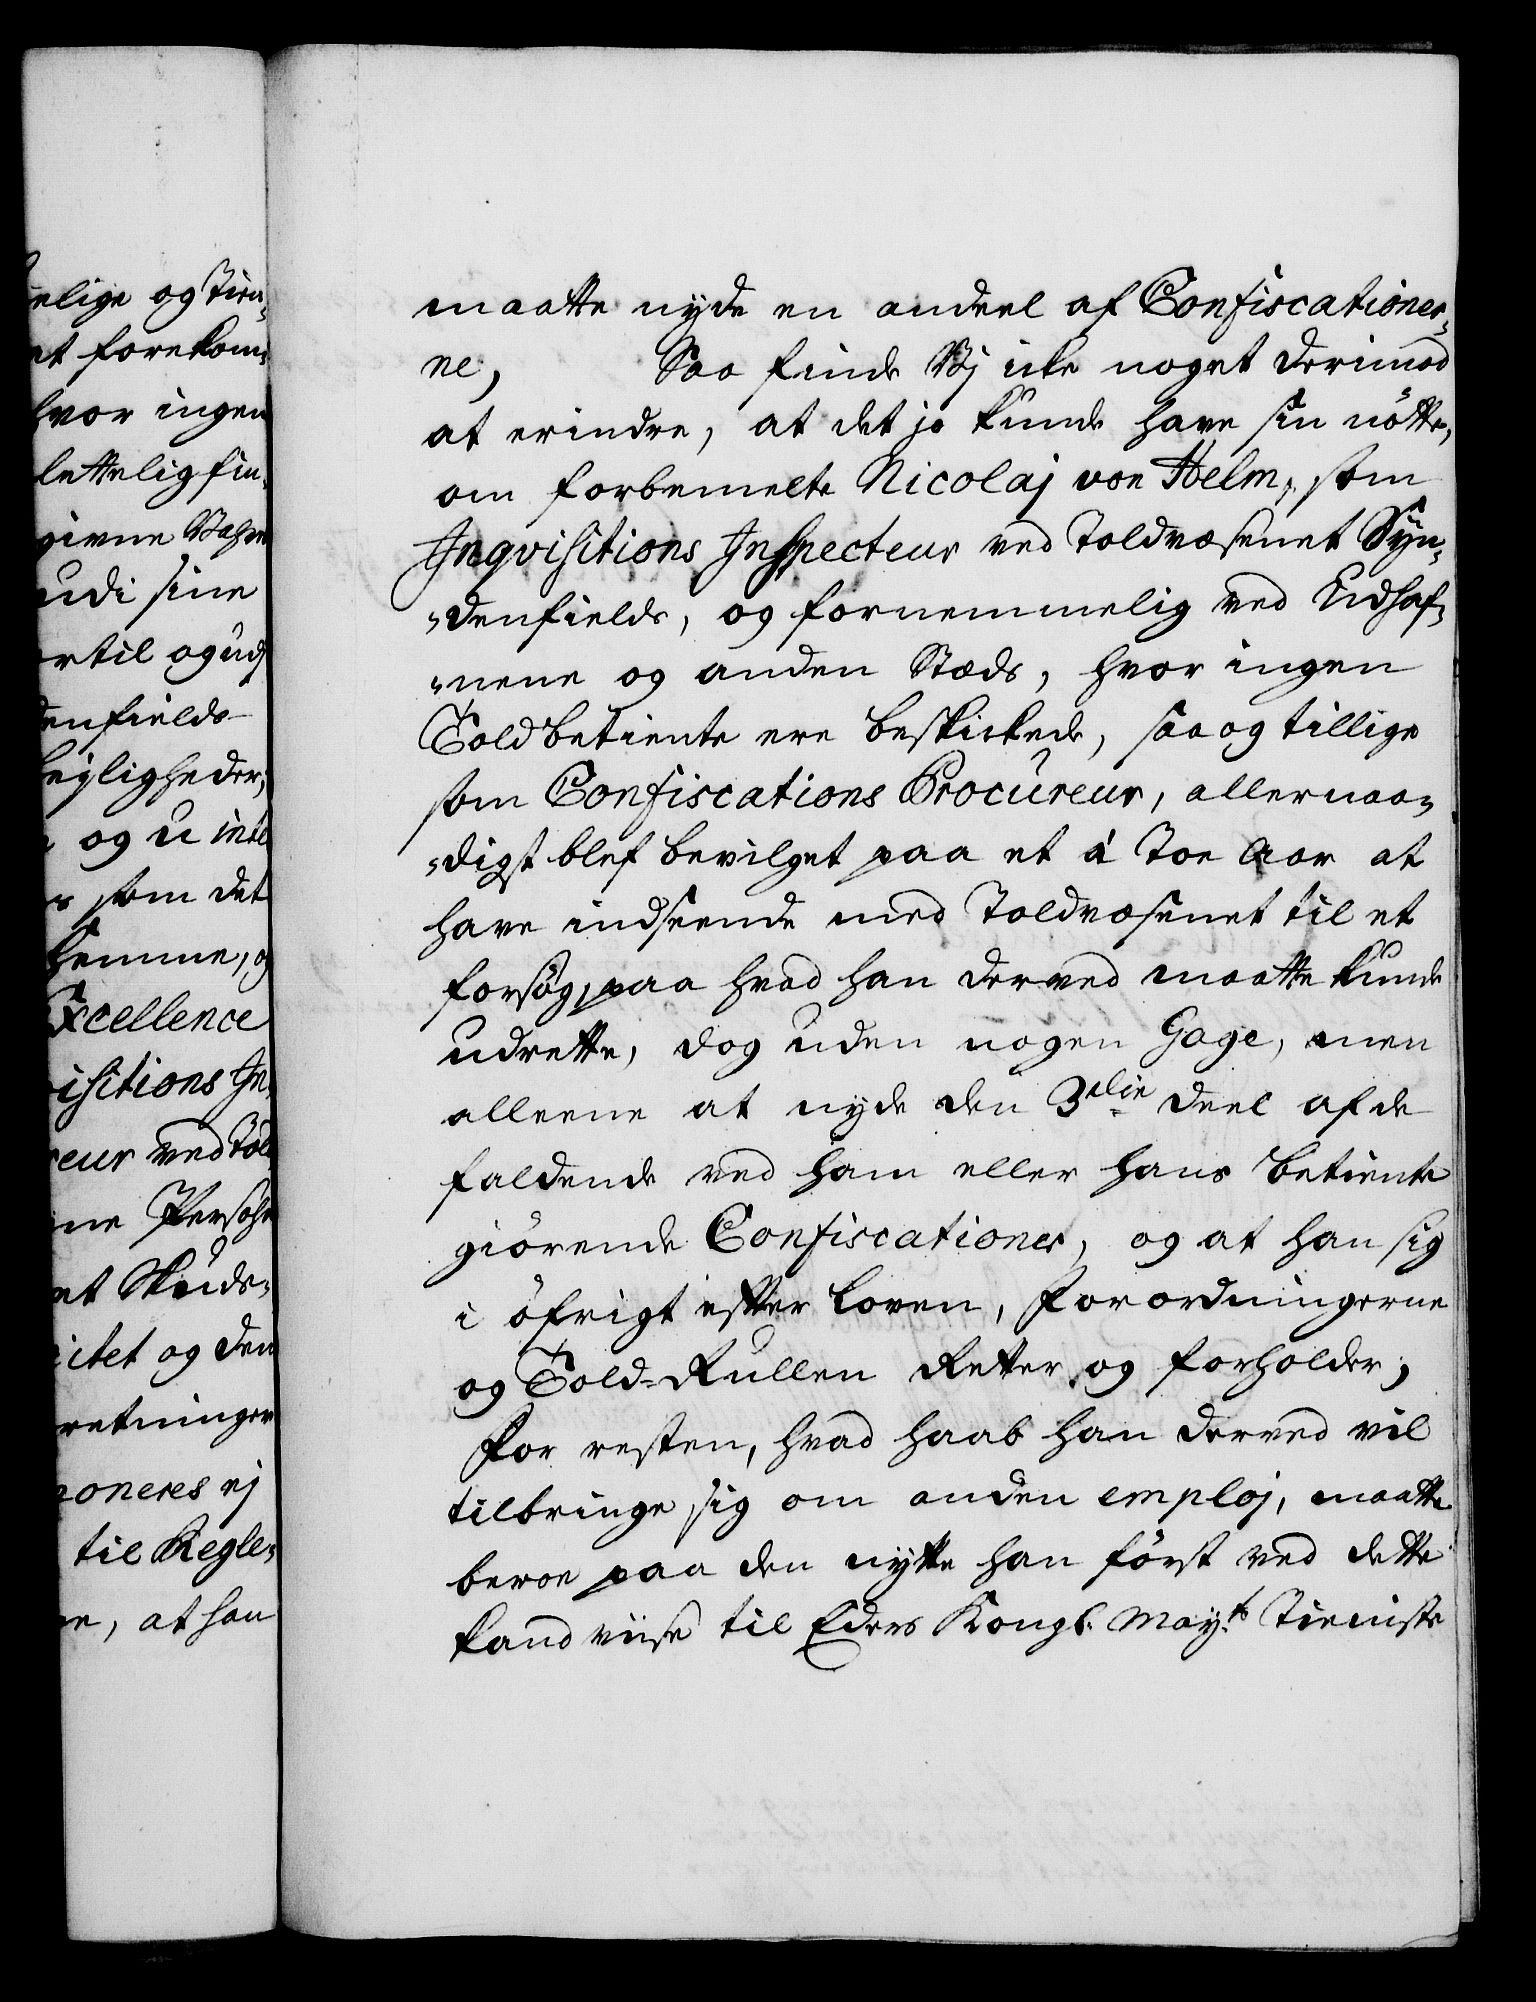 elige og Tien-
et forekom-
hvor ingen
lettelig fin-
givne Vahre
udi sine
ertil og ud
denfields
leyligheder,
og u
som det
hemme, og
Excellence
isitions In-
eur ved Told
ne Persohn
et Skuds-
itet og den
retninger
oneres ej
til Regle-
e, at han
maatte nyde en andeel af Confiscationer-
ne, Saa finde Vj icke noget derimod
at erindre, at det jo kunde have sin nötte,
om forbemelte Nicolaj von Helm, som
Inqvisitions Inspecteur ved Toldvæsenet Syn-
-denfields, og fornemmelig ved Udhaf-
-nene og anden Stæds, hvor ingen
Toldbetiente ere beskickede, saa og tillige
som Confiscations Procureur, allernaa-
-digst blef bevilget paa et á Toe Aar at
have indseende med Toldvæsenet til et
forsög, paa hvad han derved maatte kunde
udrette, dog uden nogen Gage, men
alleene at nyde den 3die deel af de
faldende ved ham eller hans betiente
giörende Confiscationer, og at han sig
i öfrigt efter Loven, Forordningerne
og Told-Rullen retter og forholder;
For resten, hvad haab han derved vil
tilbringe sig om anden emploj, maatte
beroe paa den nytte han först ved dette
kand viise til Eders Kongl. May.ts Tieniste